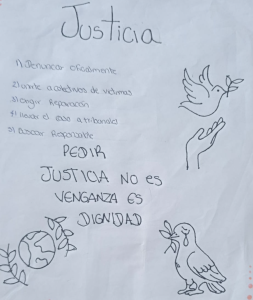 Justicia
1) Denunciar oficialmente
2) unirte a colectivos de victimas
3) exigir Reparación
4) llevar el caso a tribunales
5) Buscar Responsable
PEDIR
JUSTICIA NO es
VENGANZA ES
DIGNIDAD